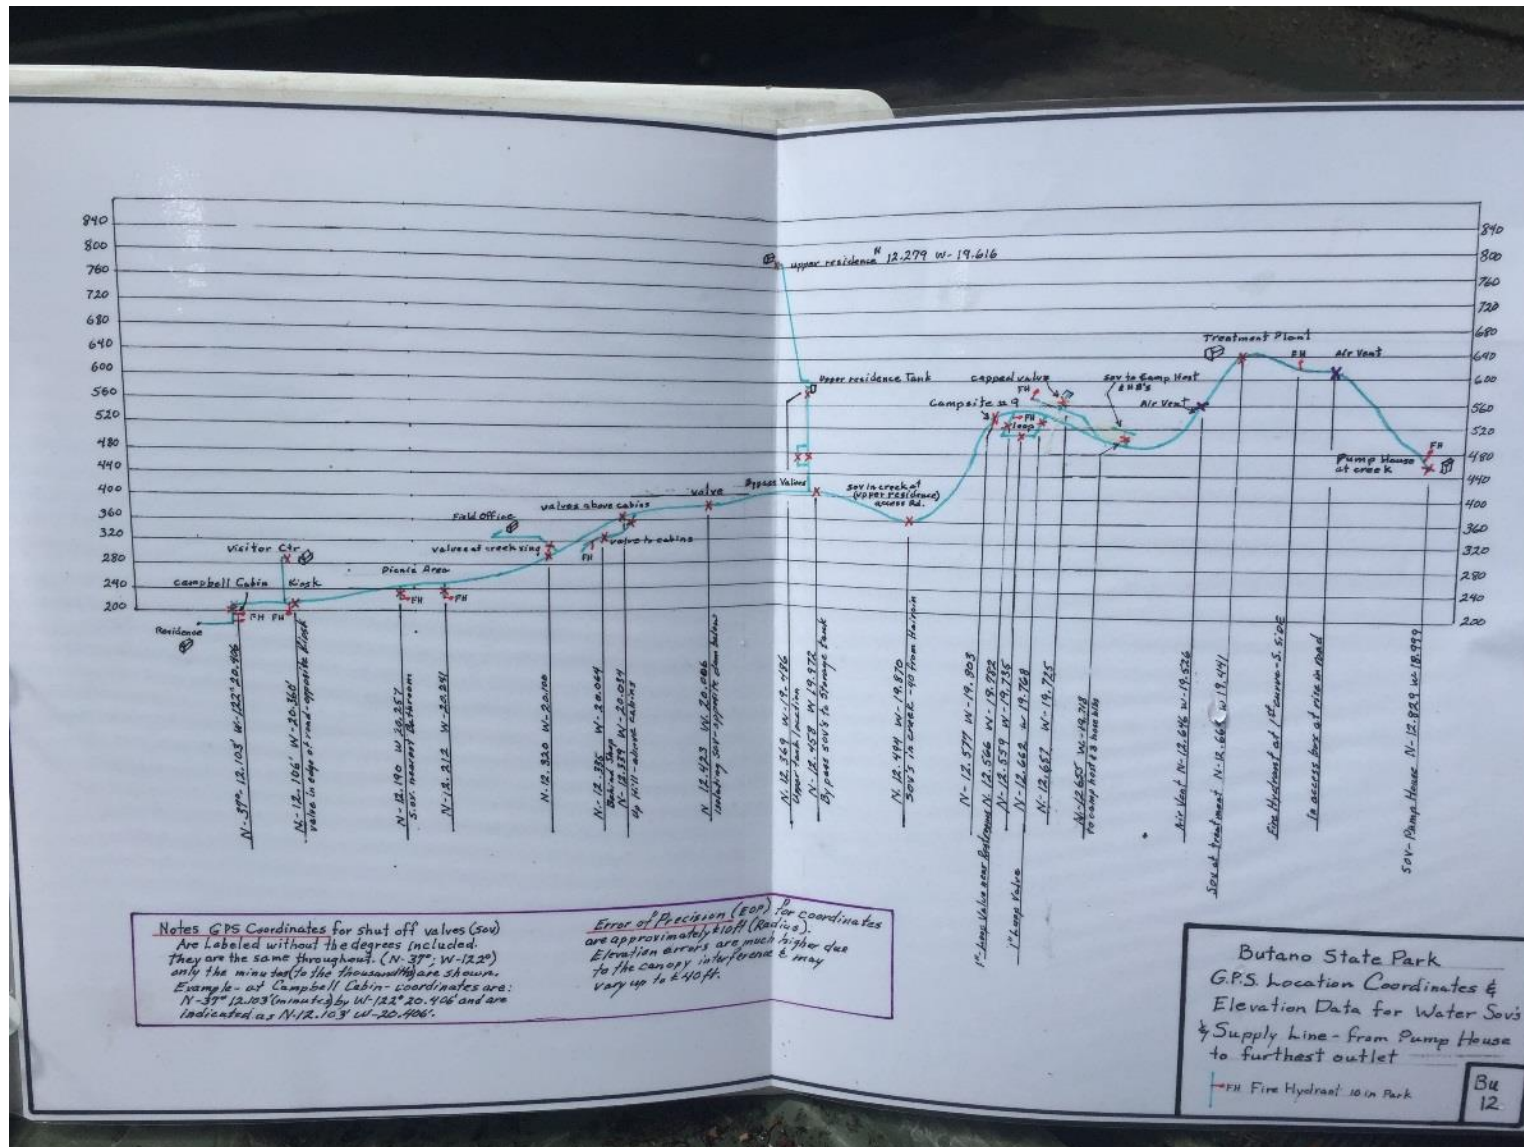 840
800
760
720
680
640
600
560
520
480
440
400
360
320
280
240
200
840
800
760
720
680
640
600
560
520
480
440
400
360
320
280
240
200
upper residence N 12.279 W-19.616
Upper residence Tank
Bypass Valves
valve
valves above cabins
valve to cabins
FH
Field Office
valves at creek xing
Picnic Area
FH
FH
Visitor Ctr
Kiosk
Campbell Cabin
FH FH
Residence
sov in creek at
(upper residence)
access Rd.
Campsite #9
capped valve
FH
FH
loop
sov to Camp Host
& HB's
Air Vent
Treatment Plant
FH
Air Vent
FH
Pump House
at creek
N-37° 12.103' W-122° 20.406
N-12.106' W-20.360'
valve in edge of road-opposite Kiosk
N-12.190 W 20.257
S.ov. nearest Bathroom
N-12.212 W-20.241
N-12.320 W-20.100
N-12.335 W-20.064
Behind Shop
N-12.339 W-20.034
Up Hill-above cabins
N 12.423 W-20.006
isolating sov-opposite dam below
N-12.369 W-19.486
Upper tank location
N-12.458 W 19.972
Bypass sov's to Storage tank
N.12.494 W-19.870
Sov's in creek -90 from Hairpin
N-12.577 W-19.803
1st Loop Valve near Restrooms N 12.566 W-19.782
N-12.559 W-19.735
N-12.662 W 19.768
1st Loop Valve
N-12.657 W-19.725
N-12.655 W-19.718
to camp host & hose bibs
Air Vent N-12.646 W-19.526
Sov at treatment N-12.66 W 19.441
Fire Hydrant at 1st curve-S. SIDE
In access box at rise in road
SOV-Pump House N-12.829 W-18.999
Notes GPS Coordinates for shut off valves (sov)
Are Labeled without the degrees included.
they are the same throughout. (N-37°; W-122°)
only the minutes (to the thousandths) are shown.
Example- at Campbell Cabin- coordinates are:
N-37° 12.103' (minutes) by W-122° 20.406' and are
indicated as N-12.103' W-20.406'.
Error of Precision (EOP) for coordinates
are approximately ±10ft (Radius).
Elevation errors are much higher due
to the canopy interference & may
vary up to ±40ft.
Butano State Park
G.P.S. Location Coordinates &
Elevation Data for Water Sov's
& Supply Line - from Pump House
to furthest outlet
FH Fire Hydrant 10 in Park
Bu
12